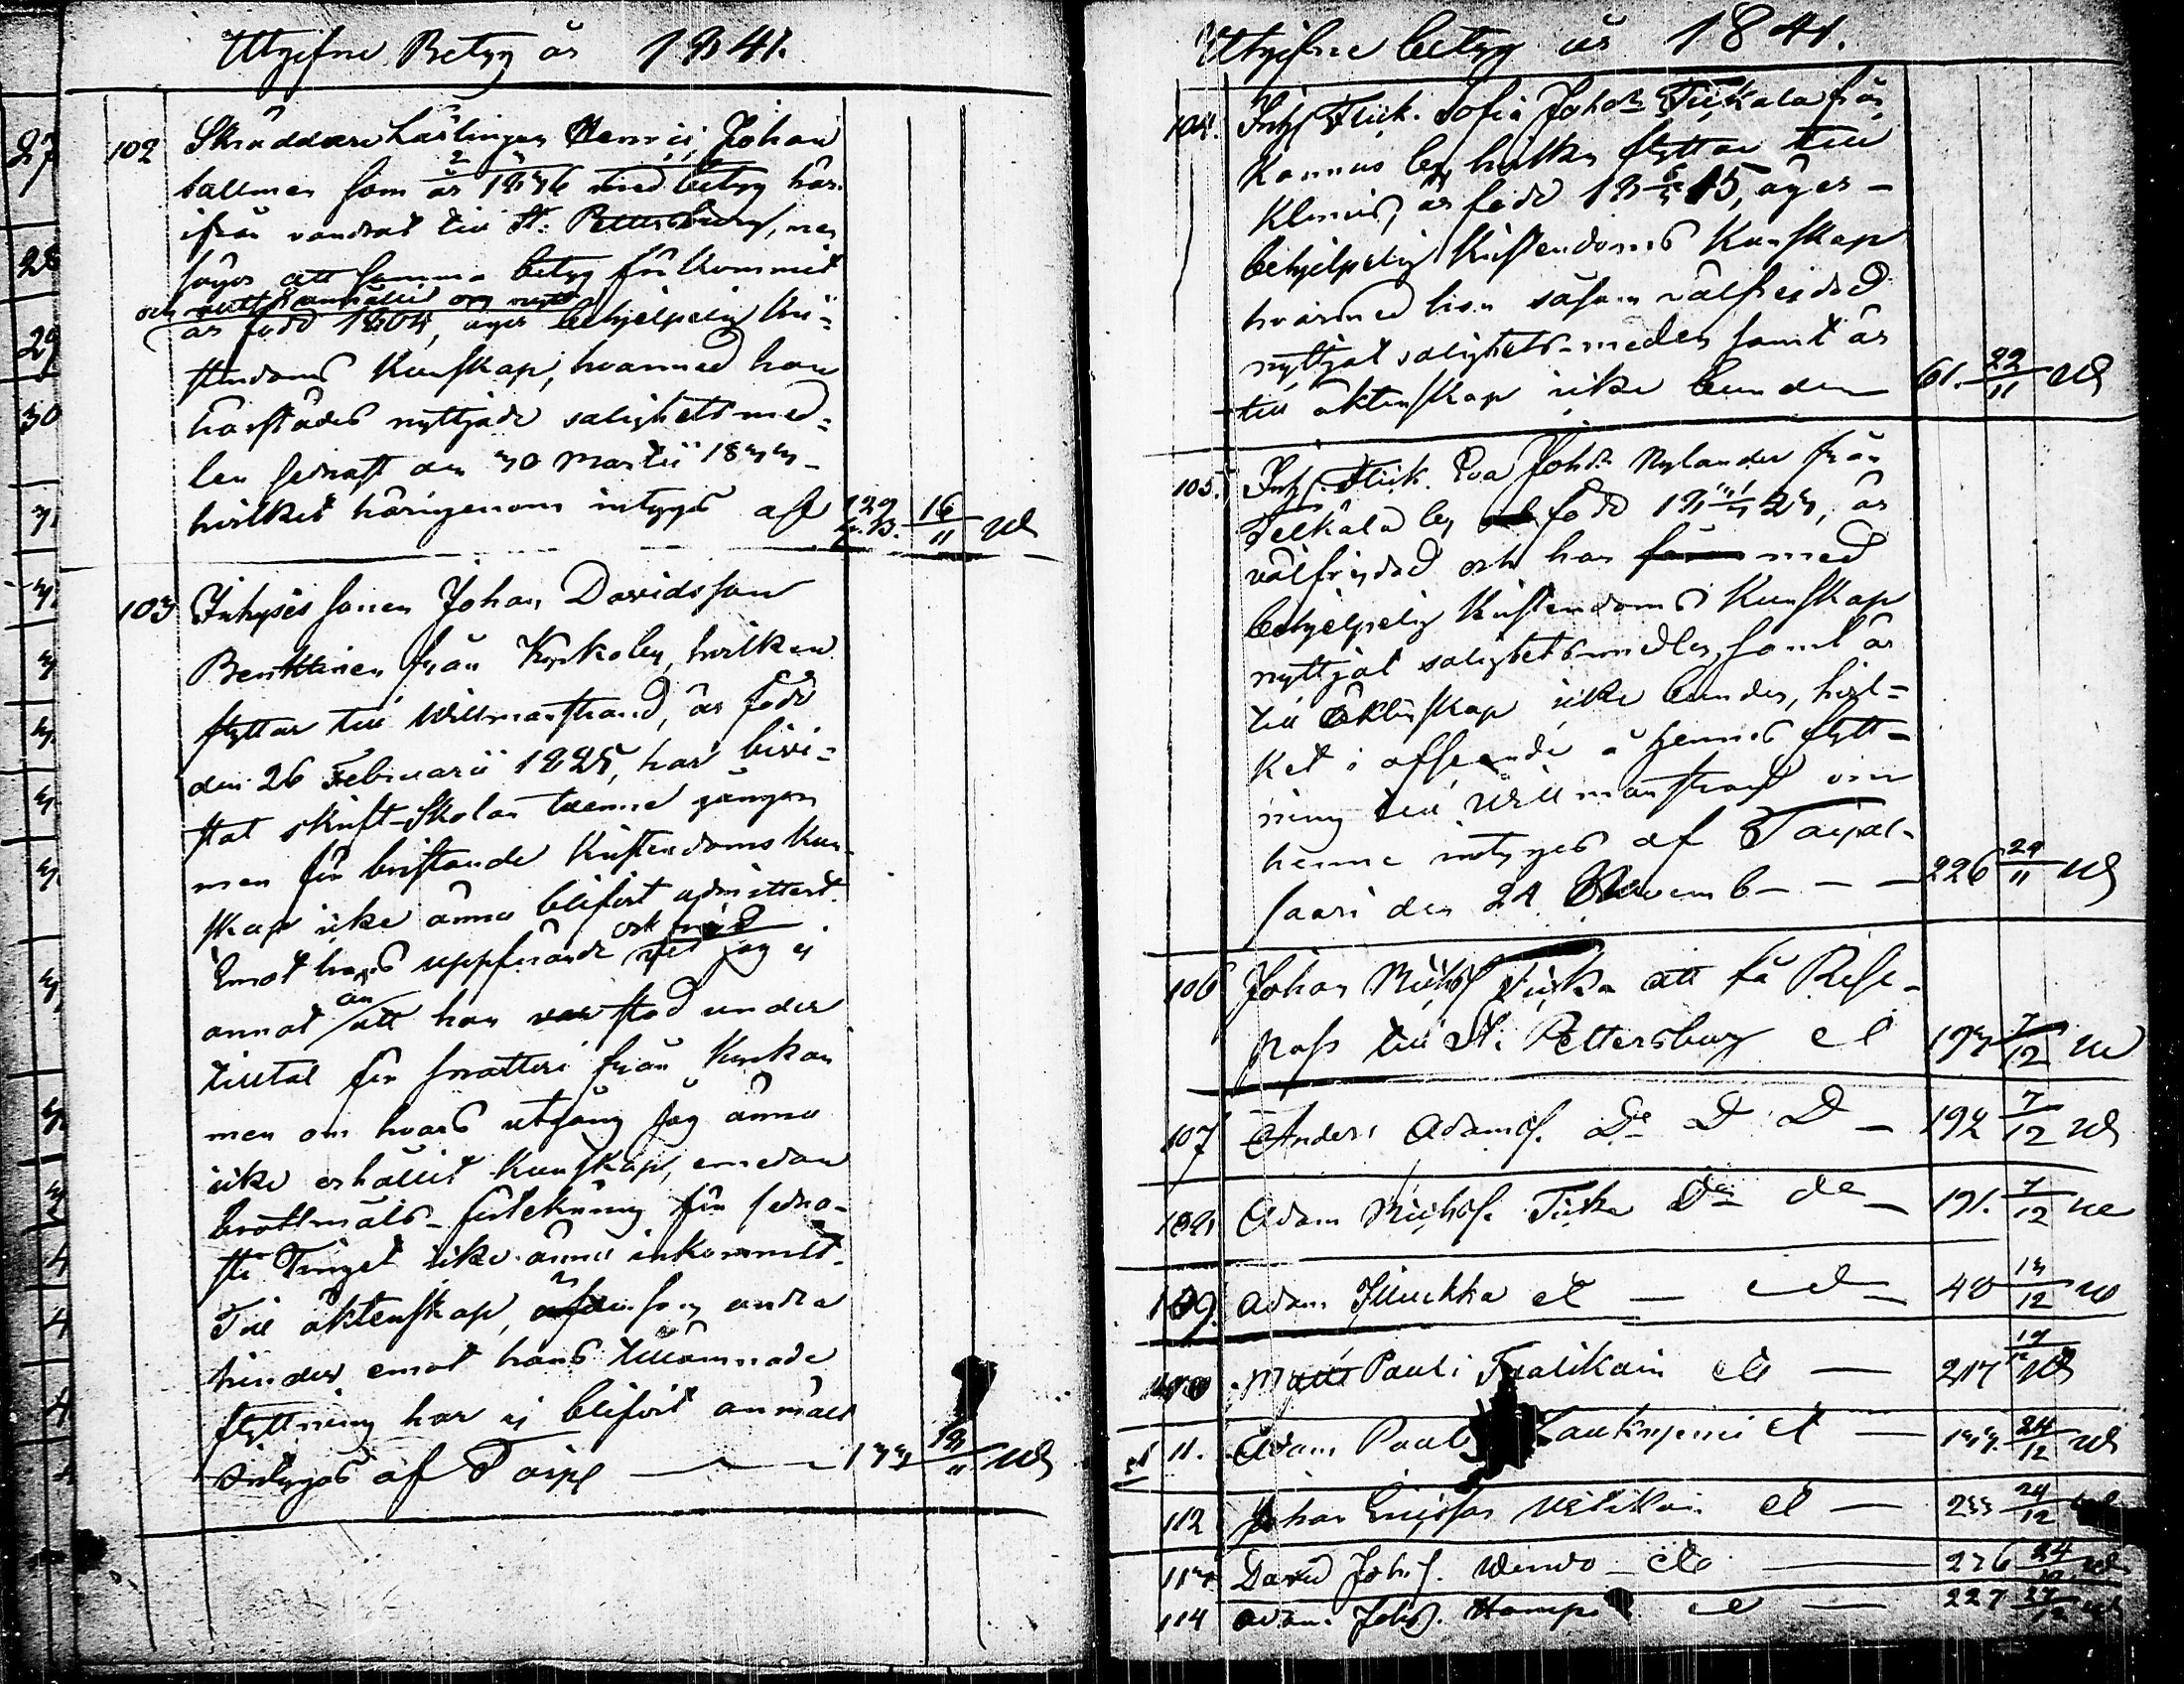 Utgifne Betyg år 1841.
102 Skräddare Lärlingen Henric Johan
Sallmen som år 1836 med betyg här-
ifrån vandrat till St. Pettersburg, men
säges att samma betyg förkommit
och anhållit om nytt
är född 1804, äger behjelpelig Kri-
stendoms Kunskap, hvarmed han
härstädes nyttjade salighetsmed-
len sednast den 30 Martii 1833 -
hvilket härigenom intygas af 129 16/11
103 Inhyses sonen Johan Davidsson
Benttinen från Kyrkoby, hvilken
flyttar till Willmanstrand, är född
den 26 Februarii 1825, har bivi-
stat skrift-Skolan tvenne gånger
men för bristande Kristendoms Kun-
skap icke ännu blifvit admitterd.
och
Emot hans uppförande vet jag ej
annat än att han stod under
tilltal för snatteri från Kyrkan
men om hvars utgång jag ännu
icke erhållit Kunskap, emedan
brottmåls-förtekning för sedna-
ste Tinget icke ännu inkommit.
Till äktenskap, andra
hinder emot hans tillämnade
flyttning har ej blifvit anmäldt
intygas af Taipl 133 18/11
Utgifne betyg år 1841.
104. Inh. Flick. Sofia Johsdr Tiikala från
Kannus by, hvilken flyttar till
Klemis, är född 18 15, äger -
behjelpelig Kristendoms Kunskap
hvarmed hon såsom välfrejdad
nyttjat salighets-medlen samt är
till äktenskap icke bunden 61. 22/11
105. Inh. Flick. Eva Johsdr Nylander från
by född 18 23, är
välfrejdad och har med
behjelpelig Kristendoms Kunskap
nyttjat salighetsmedlen, samt är
till Äktenskap icke bunden, hvil-
ket i afseende å hennes flytt-
ning till Willmanstrand om
henne intygas af Taipal-
saari den 24 Novemb - - - 226 24/11
106 Johan Michelss. Tiika att få Rese-
pass till St. Pettersburg 193 7/12
107 Anders Adamss. Do D D - 192 7/12
108 Adam Michelss. Tiika Do do - 191. 7/12
109. Adam Junkka - 40 13/12
110 Matts Pauli 217 19/12
111. Adam Paul 133. 24/12
112 Johan Ericsson 233 24/12
113 David Johss. 226 24/12
114 Adam Johss. 227 27/12